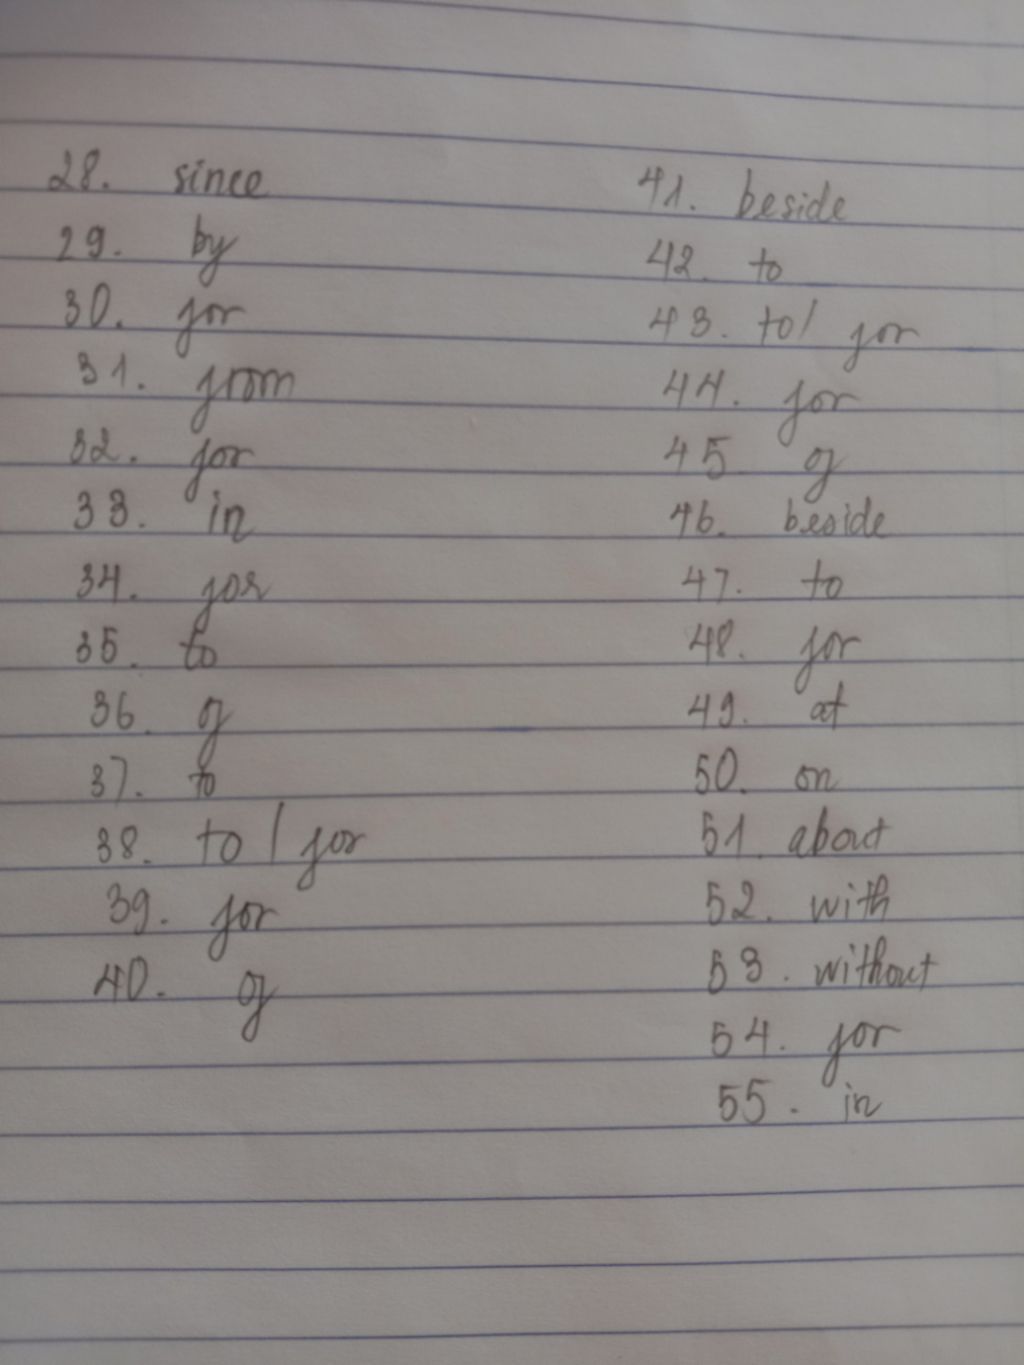 28. since
29. by
30. for
31. from
32. for
33. in
34. for
35. to
36. of
37. to
38. to / for
39. for
40. of
41. beside
42. to
43. to / for
44. for
45 of
46. beside
47. to
48. for
49. at
50. on
51. about
52. with
53. without
54. for
55. in